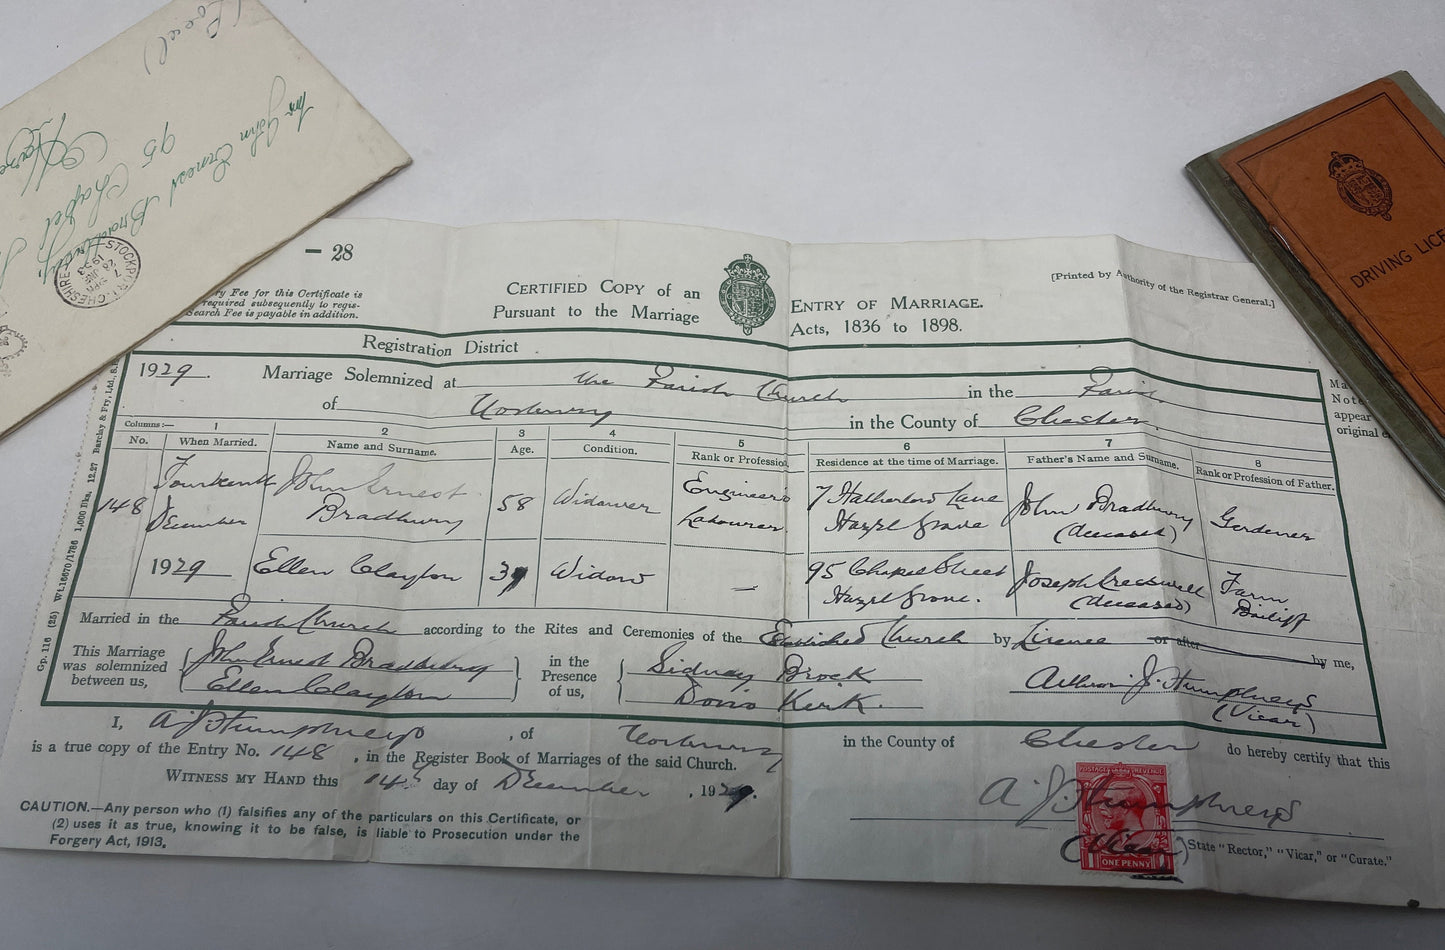 (Local)
Mr John Ernest Bradbury,
95 Chapel
Haze
STOCKPORT - CHESHIRE
7
28 JNE
1933
- 28
ry Fee for this Certificate is
required subsequently to regis-
Search Fee is payable in addition.
CERTIFIED COPY of an ENTRY OF MARRIAGE.
Pursuant to the Marriage Acts, 1836 to 1898.
[Printed by Authority of the Registrar General.]
DRIVING LICE
Registration District
1929. Marriage Solemnized at the Parish Church in the Parish
of Norbury in the County of Chester.
Columns:— 1 2 3 4 5 6 7 8
No. When Married. Name and Surname. Age. Condition. Rank or Profession. Residence at the time of Marriage. Father's Name and Surname. Rank or Profession of Father.
148 Fourteenth John Ernest 58 Widower Engineer's 7 Hatherlow Lane John Bradbury Gardener
December Bradbury Labourer Hazel Grove (deceased)
1929 Ellen Clayton 39 Widow — 95 Chapel Street Joseph Cresswell Farm
Hazel Grove. (deceased) Bailiff
Married in the Parish Church according to the Rites and Ceremonies of the Established Church by Licence or after by me,
This Marriage was solemnized between us,
John Ernest Bradbury
Ellen Clayton
in the Presence of us,
Sidney Brock
Doris Kirk.
Arthur J. Humphreys
(Vicar)
I, A J Humphreys, of Norbury in the County of Chester do hereby certify that this
is a true copy of the Entry No. 148, in the Register Book of Marriages of the said Church.
WITNESS MY HAND this 14th day of December, 1929.
A J Humphreys
(Vicar) State "Rector," "Vicar," or "Curate."
POSTAGE REVENUE
1 ONE PENNY 1
CAUTION.—Any person who (1) falsifies any of the particulars on this Certificate, or
(2) uses it as true, knowing it to be false, is liable to Prosecution under the
Forgery Act, 1913.
Gp. 116 (25) Wt.16670/1786 1,000 Bks. 12.27 Barclay & Fry, Ltd., S.
Ma
Note
appear
original e